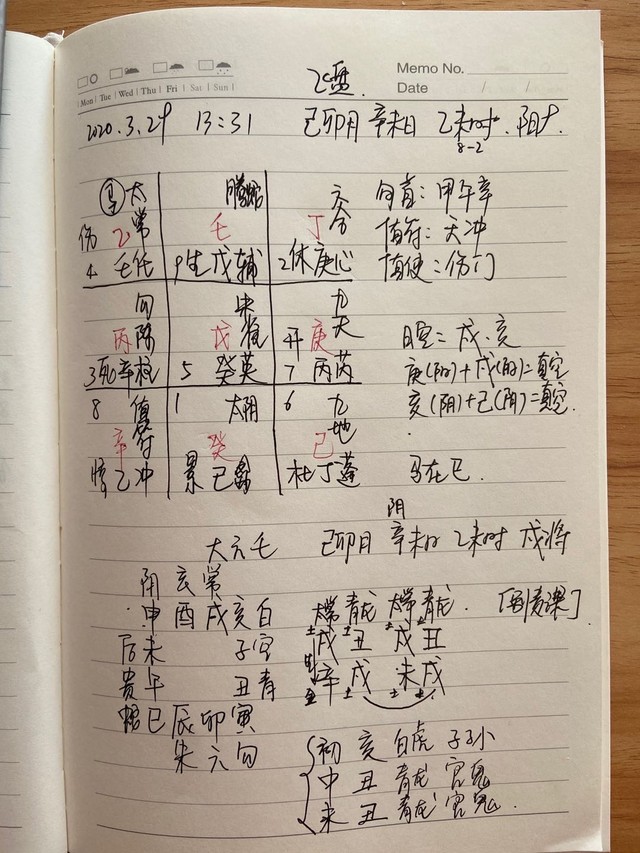 Memo No.
Mon Tue Wed Thu Fri Sat Sun
Date / /
2020.3.29 13:31 己卯月 辛未日 乙未时 阳
8-2
马 太 腾蛇 六 旬首：甲午辛
伤 乙 常 壬 丁 合 值符：天冲
4 壬任 9生戊辅 2休庚心 值使：伤门
勾 朱 九
丙 陈 戊 雀 开 庚 天 日空=戌.亥
3死辛柱 5 癸英 7 丙芮 庚(阳)+戌(阳)=真空
8 值 1 太阴 6 九 亥(阴)+己(阴)=真空.
辛 符 癸 己 地
惊乙冲 景己禽 杜丁蓬 马在巳.
阴
己卯月 辛未日 乙未时 戌将
阴 亥常
申 酉 戌 亥白 太常 青龙 太常 青龙.
后未 子空 戌 丑 戌 丑
贵午 丑青 辛 戌 未 戌
巳 辰 卯 寅
朱 六 勾 初 亥 白虎 子孙
中 丑 青龙 官鬼
末 丑 青龙 官鬼.